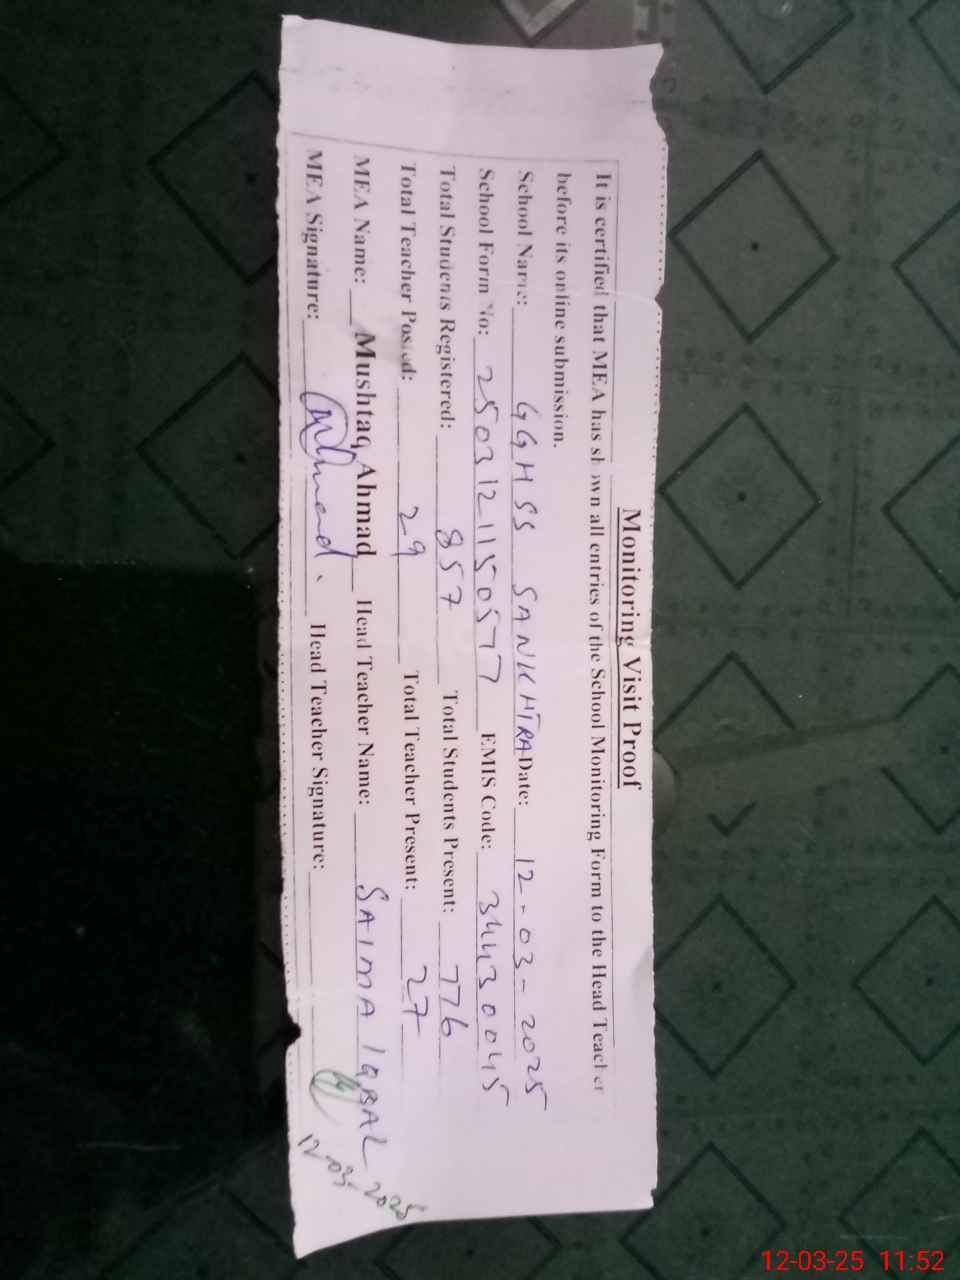 Monitoring Visit Proof
It is certified that MEA has shown all entries of the School Monitoring Form to the Head Teacher
before its online submission.
School Name: GGHSS SANKHTRA Date: 12-03-2025
School Form No: 2503121150577 EMIS Code: 34430045
Total Students Registered: 857 Total Students Present: 776
Total Teacher Posted: 29 Total Teacher Present: 27
MEA Name: Mushtaq Ahmad Head Teacher Name: SAIMA IQBAL
MEA Signature: Ahmad Head Teacher Signature:
12-03-2025
12-03-25 11:52